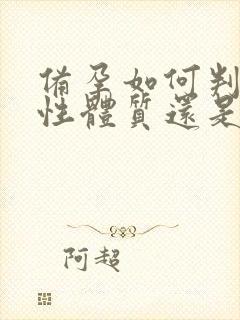 備孕如何判
性體質還是
阿超